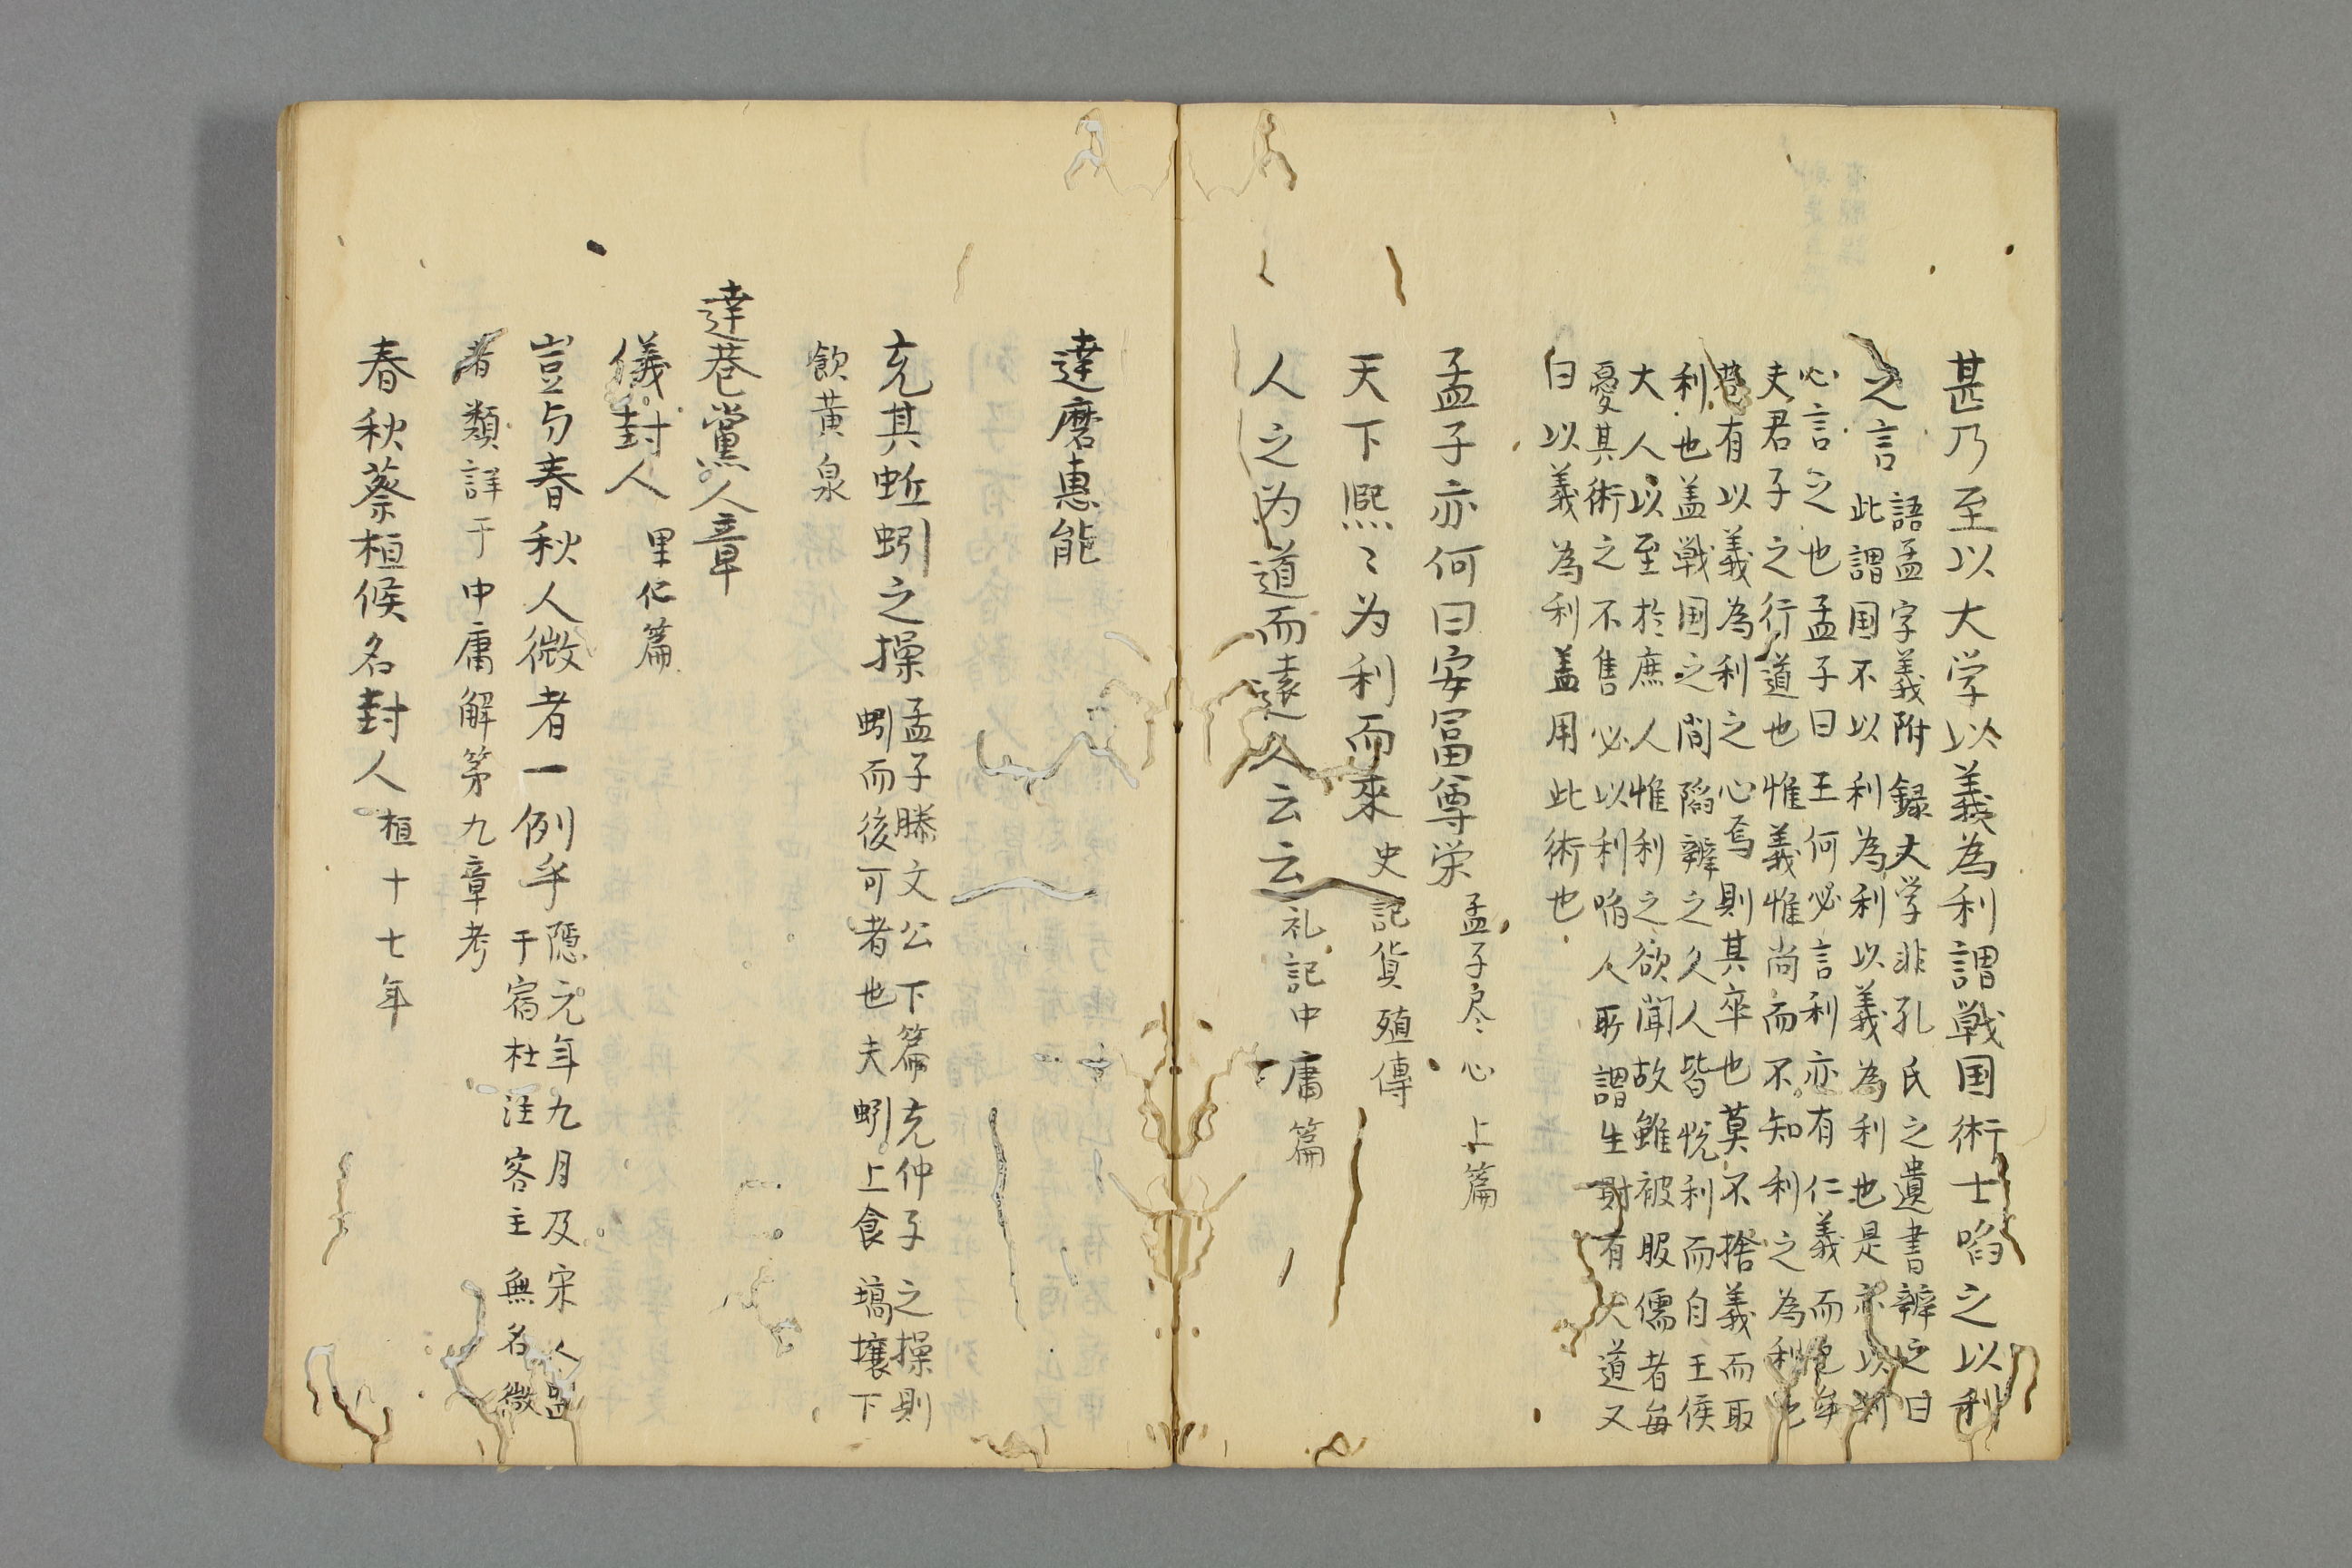 甚乃至以大学以義為利謂戦国術士啗之以利
之言
語孟字義附録大学非孔氏之遺書辨之曰
此謂国不以利為利以義為利也是亦以利
心言之也孟子曰王何必言利亦有仁義而已矣
夫君子之行道也惟義惟尚而不知利之為利也
苟有以義為利之心焉則其卒也莫不捨義而取
利也盖戦国之間陷辨之久人皆悦利而自王侯
大人以至於庶人惟利之欲聞故雖被服儒者毎
憂其術之不售必以利啗人所謂生財有大道又
曰以義為利盖用此術也
孟子亦何曰安冨尊栄 孟子尽心上篇
天下熈〻为利而来 史記貨殖傳
人之为道而遠人云云 礼記中庸篇
達磨惠能
充其蚯蚓之操
孟子滕文公下篇充仲子之操則
蚓而後可者也夫蚓上食壔壤下
飲黄泉
達巷黨人章
儀封人 里仁篇
豈与春秋人微者一例乎
隠元年九月及宋人盟
于宿杜注客主無名微
者類詳于中庸解第九章考
春秋蔡桓候名封人 桓十七年